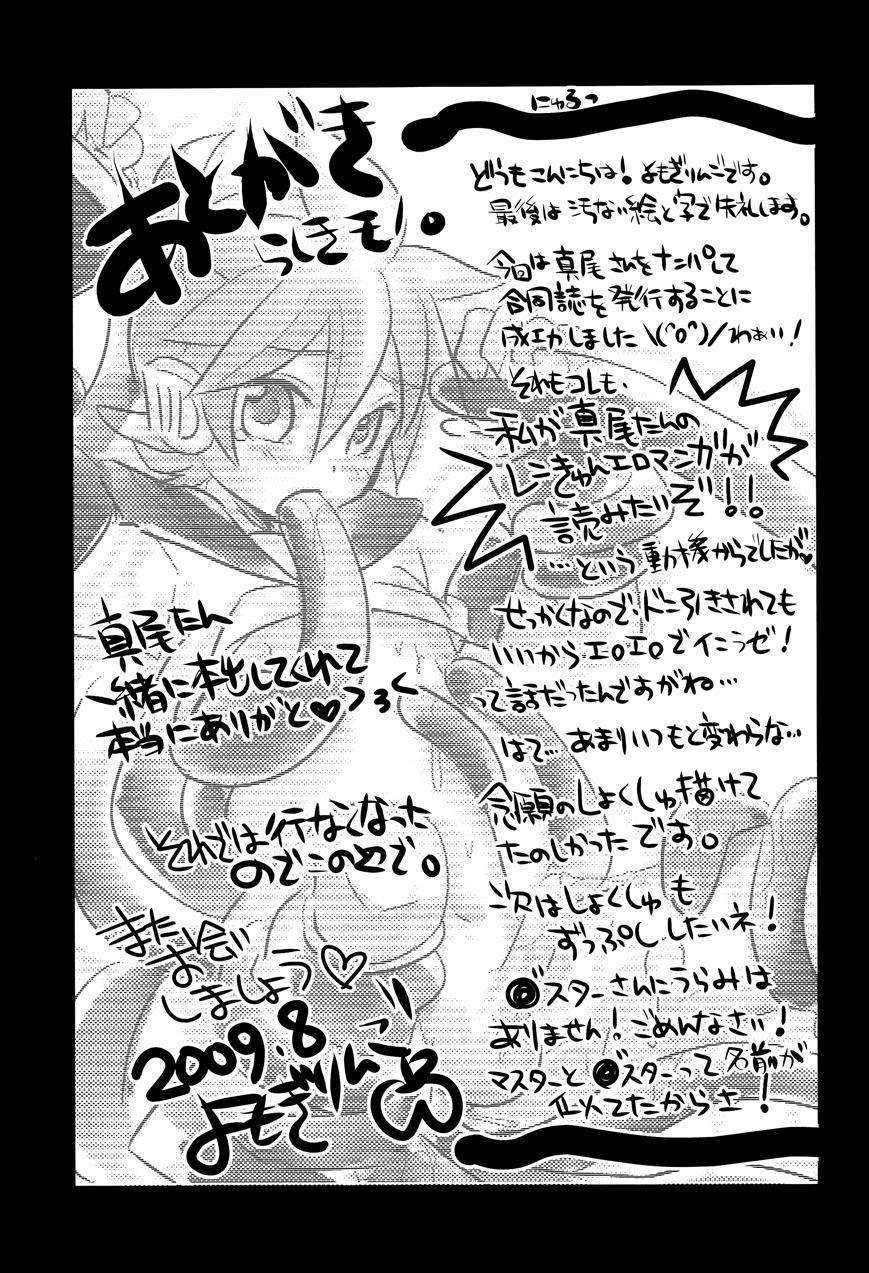 にゅるっ
あとがき
らしきモノ。
どうもこんにちは！よもぎりんごです。
最後は汚ない絵と字で失礼します。
今回は真尾さんをナンパして
合同誌を発行することに
成功しました \(^o^)/わぁい！
それもコレも、
私が真尾たんの
レンきゅんエロマンガが
読みたいぞ!!
…という動機からでしたが♥
せっかくなので、ドン引きされても
いいからエロエロでイこうゼ！
って話だったんですがね…
はて…あまりいつもと変わらな‥
念願のしょくしゅ描けて
たのしかったです。
次はしょくしゅも
ずっぷししたいネ！
スターさんにうらみは
ありません！ごめんなさい！
マスターと スターって名前が
似てたからさ！
真尾たん
一緒に本出してくれて
本当にありがと♥
それでは行なくなった
のでこのへで。
またお会い
しましょう♡
2009.8
よもぎりんご